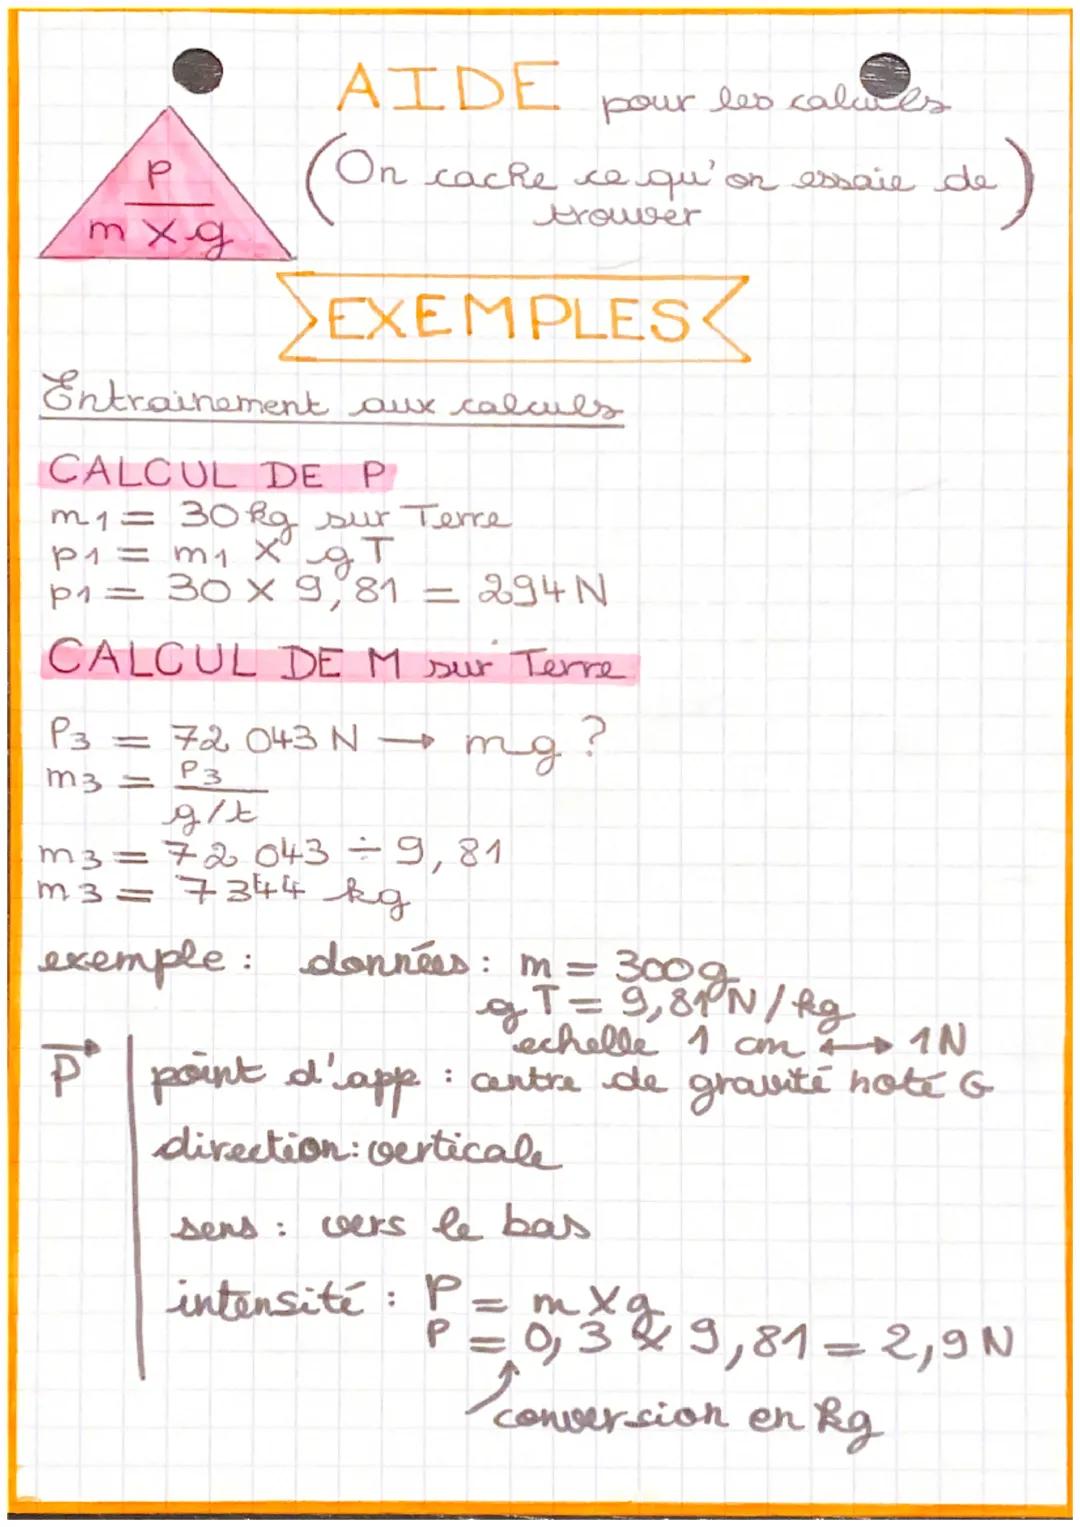 AIDE pour les calculs
P
m X g
(On cache ce qu'on essaie de
trouver)
EXEMPLES
Entrainement aux calculs
CALCUL DE P
m1 = 30 kg sur Terre
P1 = m1 X gT
P1 = 30 X 9,81 = 294 N
CALCUL DE M sur Terre
P3 = 72 043 N → mg ?
m3 = P3
g/t
m3 = 72 043 ÷ 9,81
m3 = 7344 kg
exemple : données : m = 300g
gT = 9,81 N/kg
echelle 1 cm ↔ 1N
P point d'app : centre de gravité noté G
direction : verticale
sens : vers le bas
intensité : P = m X g
P = 0,3 X 9,81 = 2,9 N
conversion en kg